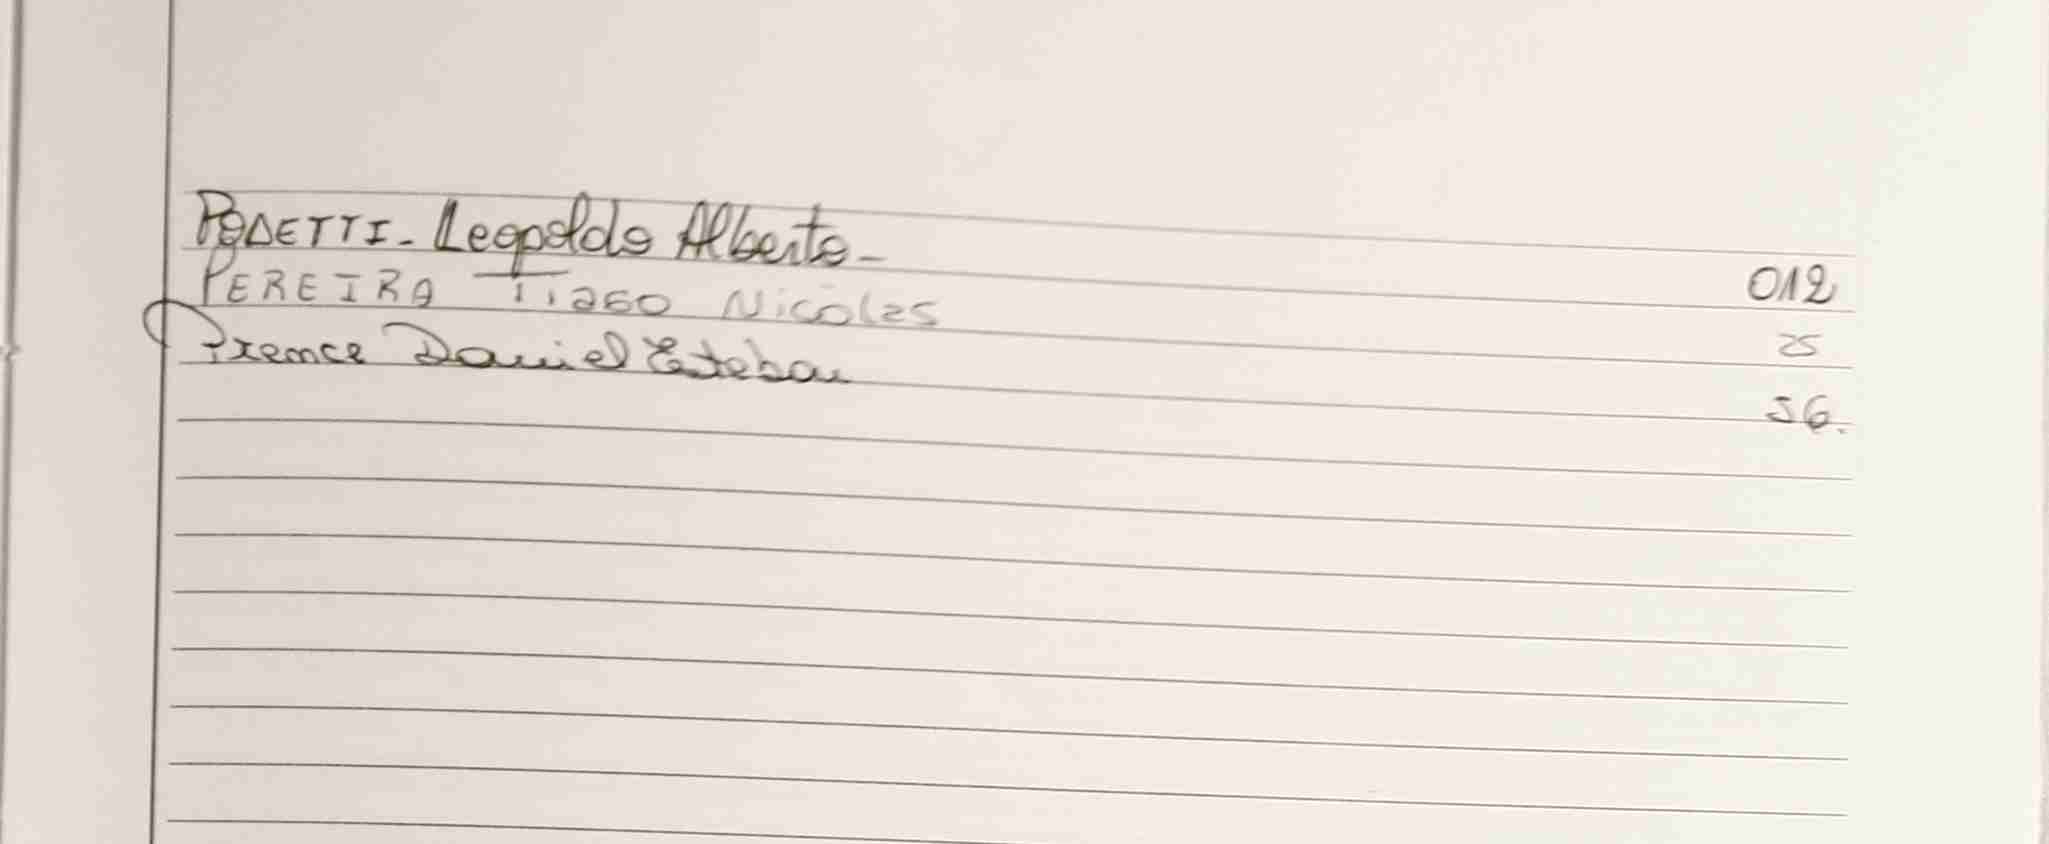 PODETTI - Leopoldo Alberto - 012
PEREIRA Tiago Nicolas 25
Daniel Esteban 56.